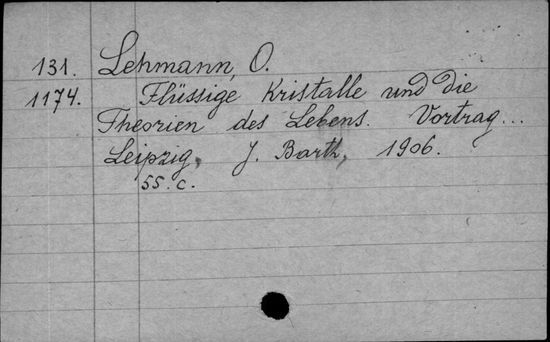 131. Lehmann, O.
1174. Flüssige Kristalle und die
Theorien des Lebens. Vortrag...
Leipzig, J. Barth, 1906.
55. c.